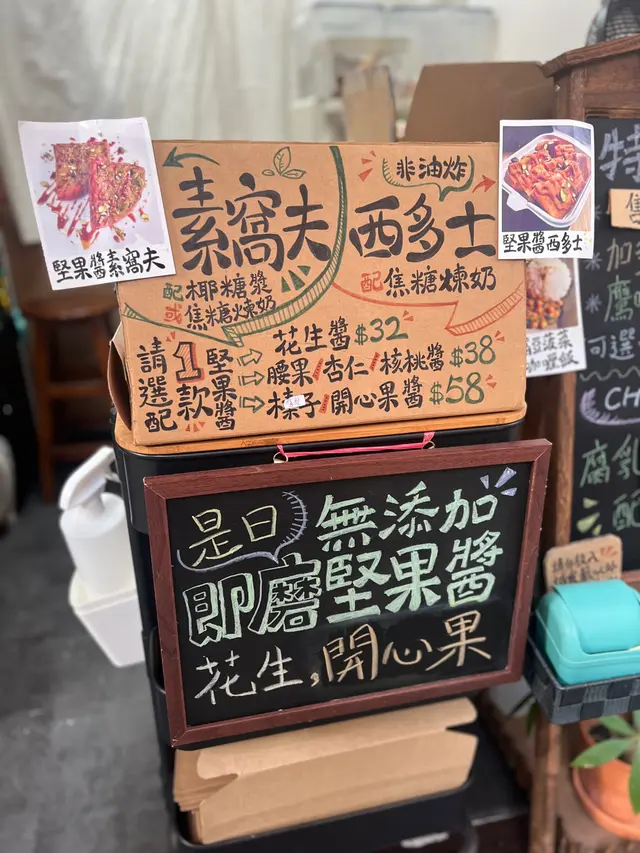 素窩夫
配 椰糖漿
或 焦糖煉奶
非油炸
西多士
配 焦糖煉奶
堅果醬素窩夫
堅果醬西多士
請選配 1款 堅果醬
花生醬 $32
腰果/杏仁/核桃醬 $38
榛子/開心果醬 $58
是日
無添加
即磨堅果醬
花生,開心果
特
加
可選
CH
腐乳
配